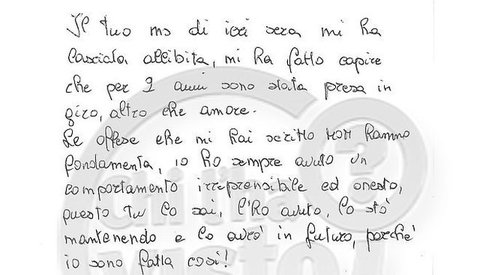 Il tuo ms di ieri sera mi ha
lasciata allibita, mi ha fatto capire
che per 2 anni sono stata presa in
giro, altro che amore.
Le offese che mi hai scritto NON hanno
fondamenta, io ho sempre avuto un
comportamento irreprensibile ed onesto,
questo tu lo sai, l'ho avuto, lo sto'
mantenendo e lo avrò in futuro, perchè
io sono fatta così!
Chi l'ha
visto?